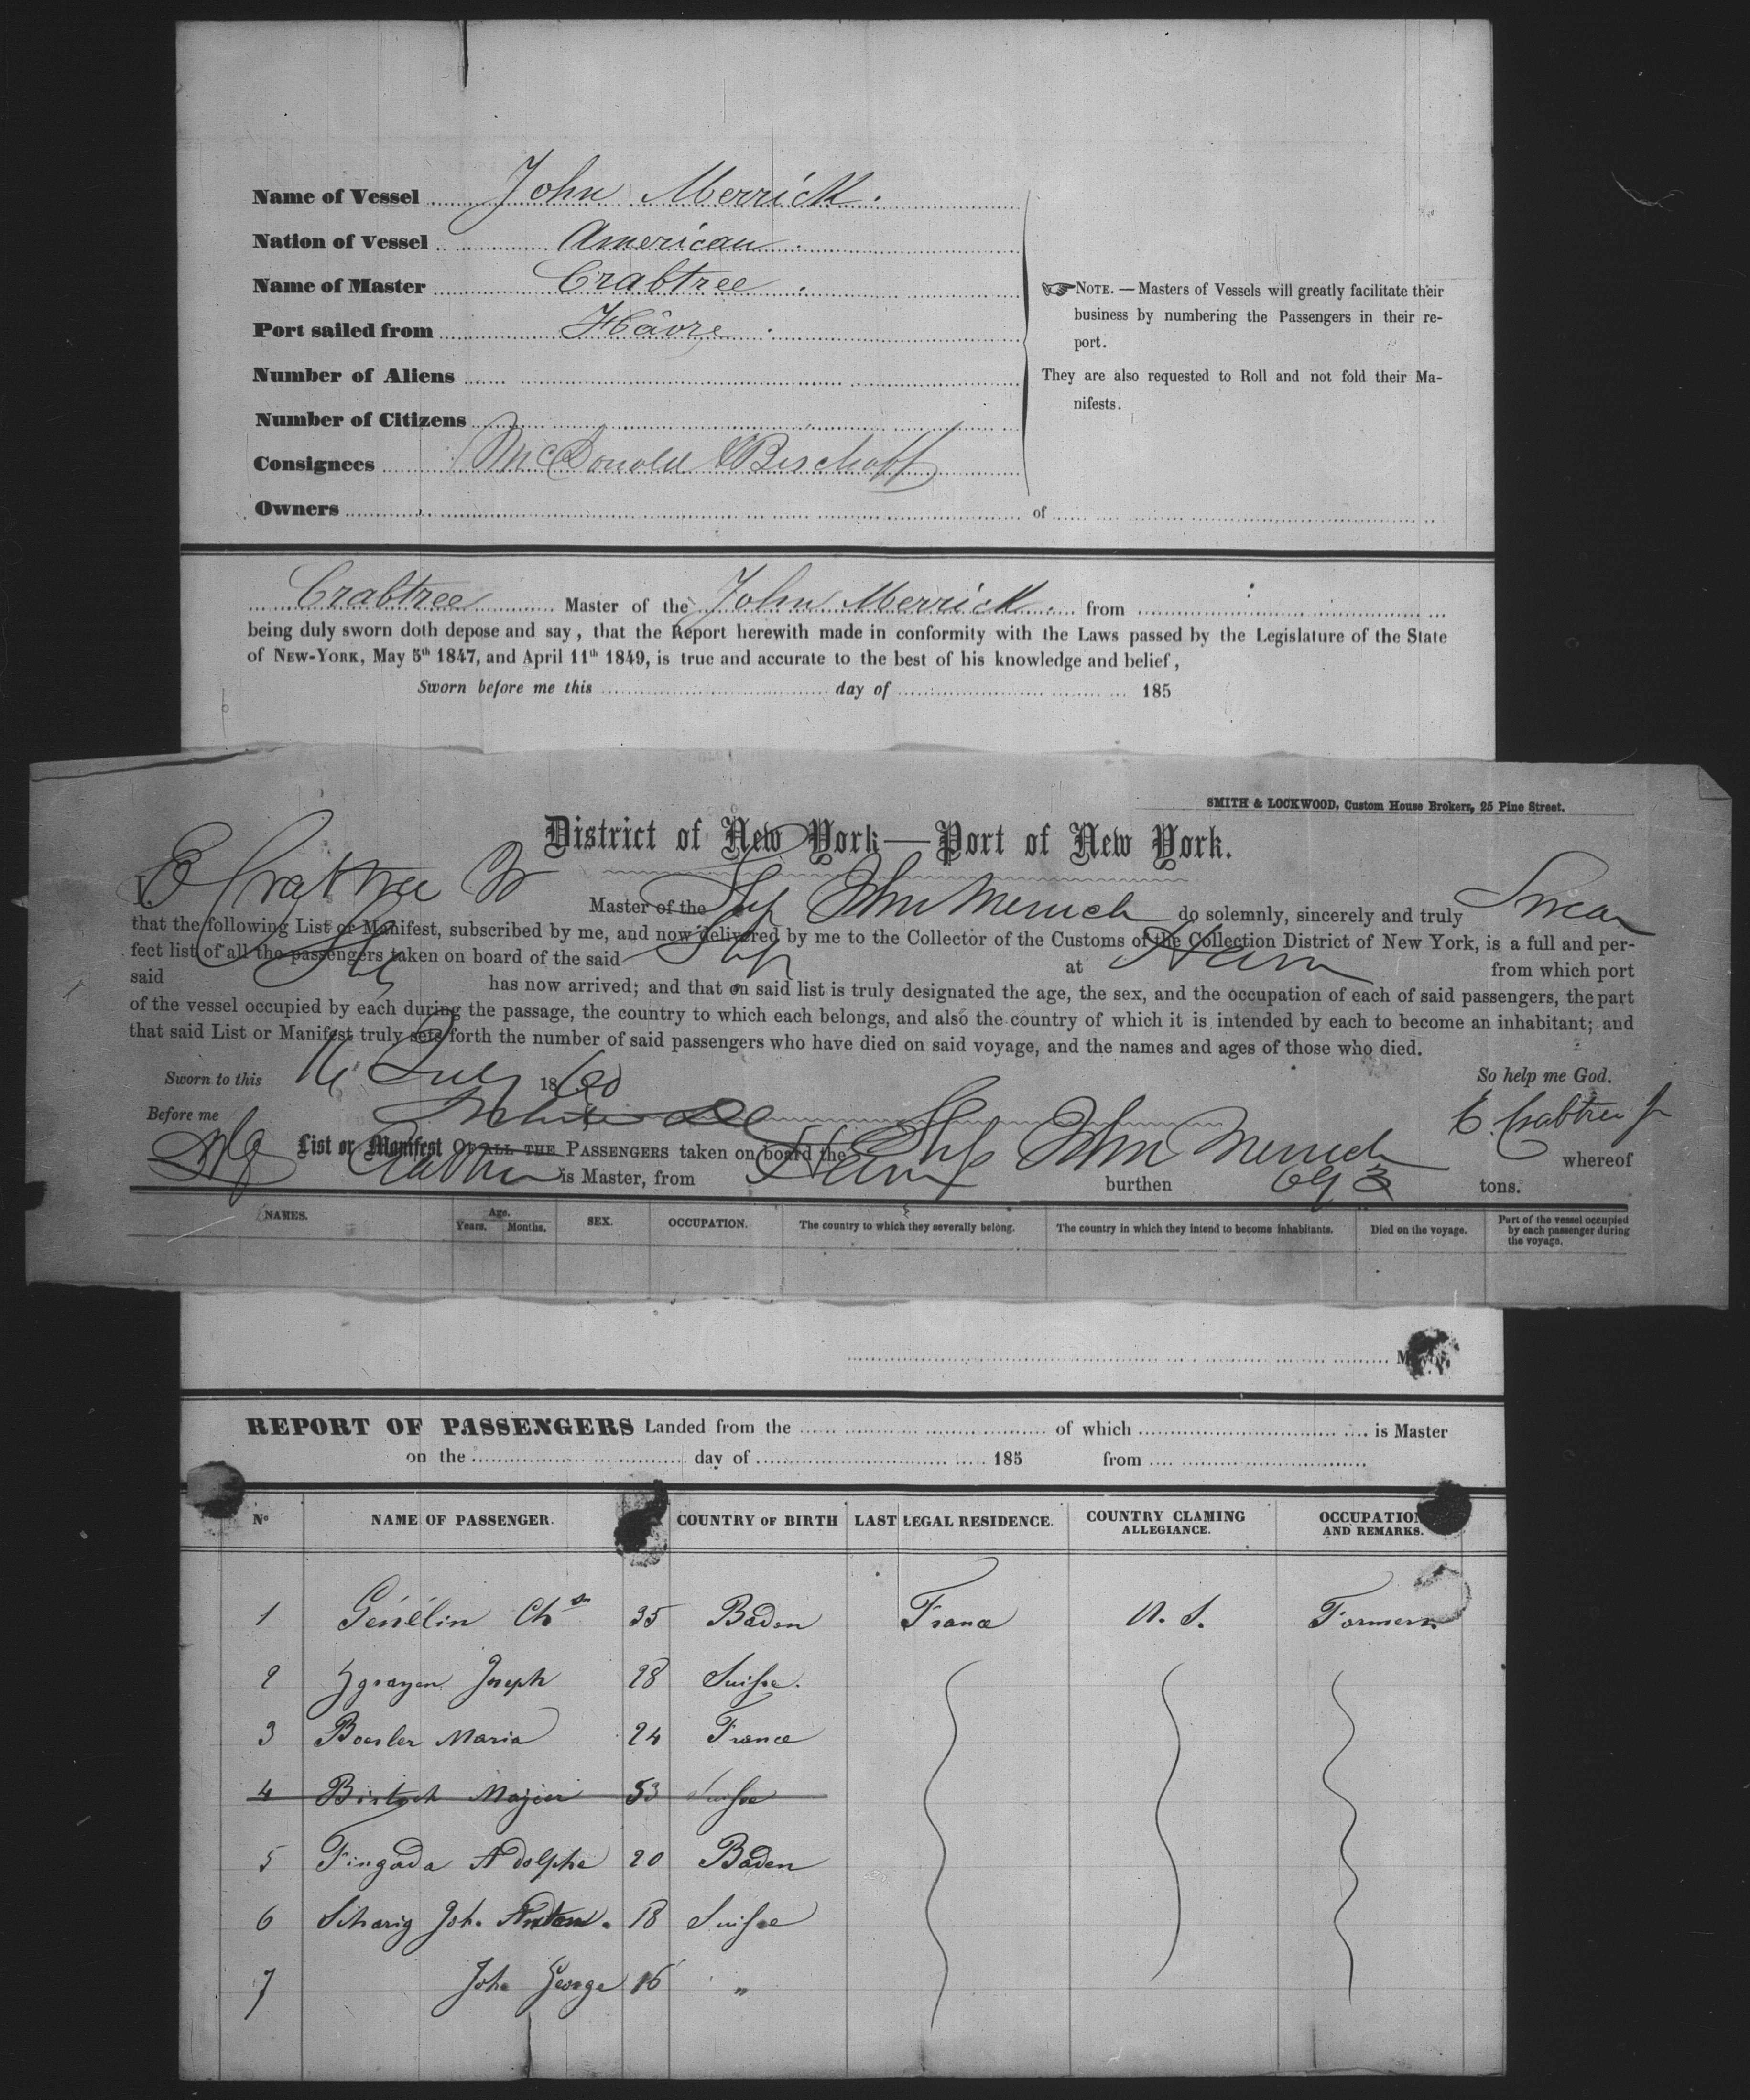 Name of Vessel John Merrick.
Nation of Vessel American.
Name of Master Crabtree.
Port sailed from Hâvre.
Number of Aliens
Number of Citizens
Consignees McDonald & Bischoff
Owners of
NOTE. — Masters of Vessels will greatly facilitate their
business by numbering the Passengers in their re-
port.
They are also requested to Roll and not fold their Ma-
nifests.
Crabtree Master of the John Merrick. from
being duly sworn doth depose and say, that the Report herewith made in conformity with the Laws passed by the Legislature of the State
of NEW-YORK, May 5th 1847, and April 11th 1849, is true and accurate to the best of his knowledge and belief,
Sworn before me this day of 185
SMITH & LOCKWOOD, Custom House Brokers, 25 Pine Street.
District of New York—Port of New York.
I, E Crabtree Jr Master of the Ship John Merrick do solemnly, sincerely and truly Swear
that the following List or Manifest, subscribed by me, and now delivered by me to the Collector of the Customs of the Collection District of New York, is a full and per-
fect list of all the passengers taken on board of the said Ship at Havre from which port
said Ship has now arrived; and that on said list is truly designated the age, the sex, and the occupation of each of said passengers, the part
of the vessel occupied by each during the passage, the country to which each belongs, and also the country of which it is intended by each to become an inhabitant; and
that said List or Manifest truly sets forth the number of said passengers who have died on said voyage, and the names and ages of those who died.
Sworn to this 16 July 1860 So help me God.
Before me E. Crabtree Jr
List or Manifest OF ALL THE PASSENGERS taken on board the Ship John Merrick whereof
Crabtree is Master, from Havre burthen 693 tons.
NAMES. Age. Years. Months. SEX. OCCUPATION. The country to which they severally belong. The country in which they intend to become inhabitants. Died on the voyage. Part of the vessel occupied by each passenger during the voyage.
REPORT OF PASSENGERS Landed from the of which is Master
on the day of 185 from
No NAME OF PASSENGER. COUNTRY OF BIRTH LAST LEGAL RESIDENCE. COUNTRY CLAMING ALLEGIANCE. OCCUPATION AND REMARKS.
1 Génélin Chsn 35 Baden France U. S. Farmers
2 Joseph 28 Suisse.
3 Boesler Maria 24 France
4 Bistsch 53 Suisse
5 Fingada Adolphe 20 Baden
6 Scharig Joh. Anton. 18 Suisse
7 Joh. George 16 "